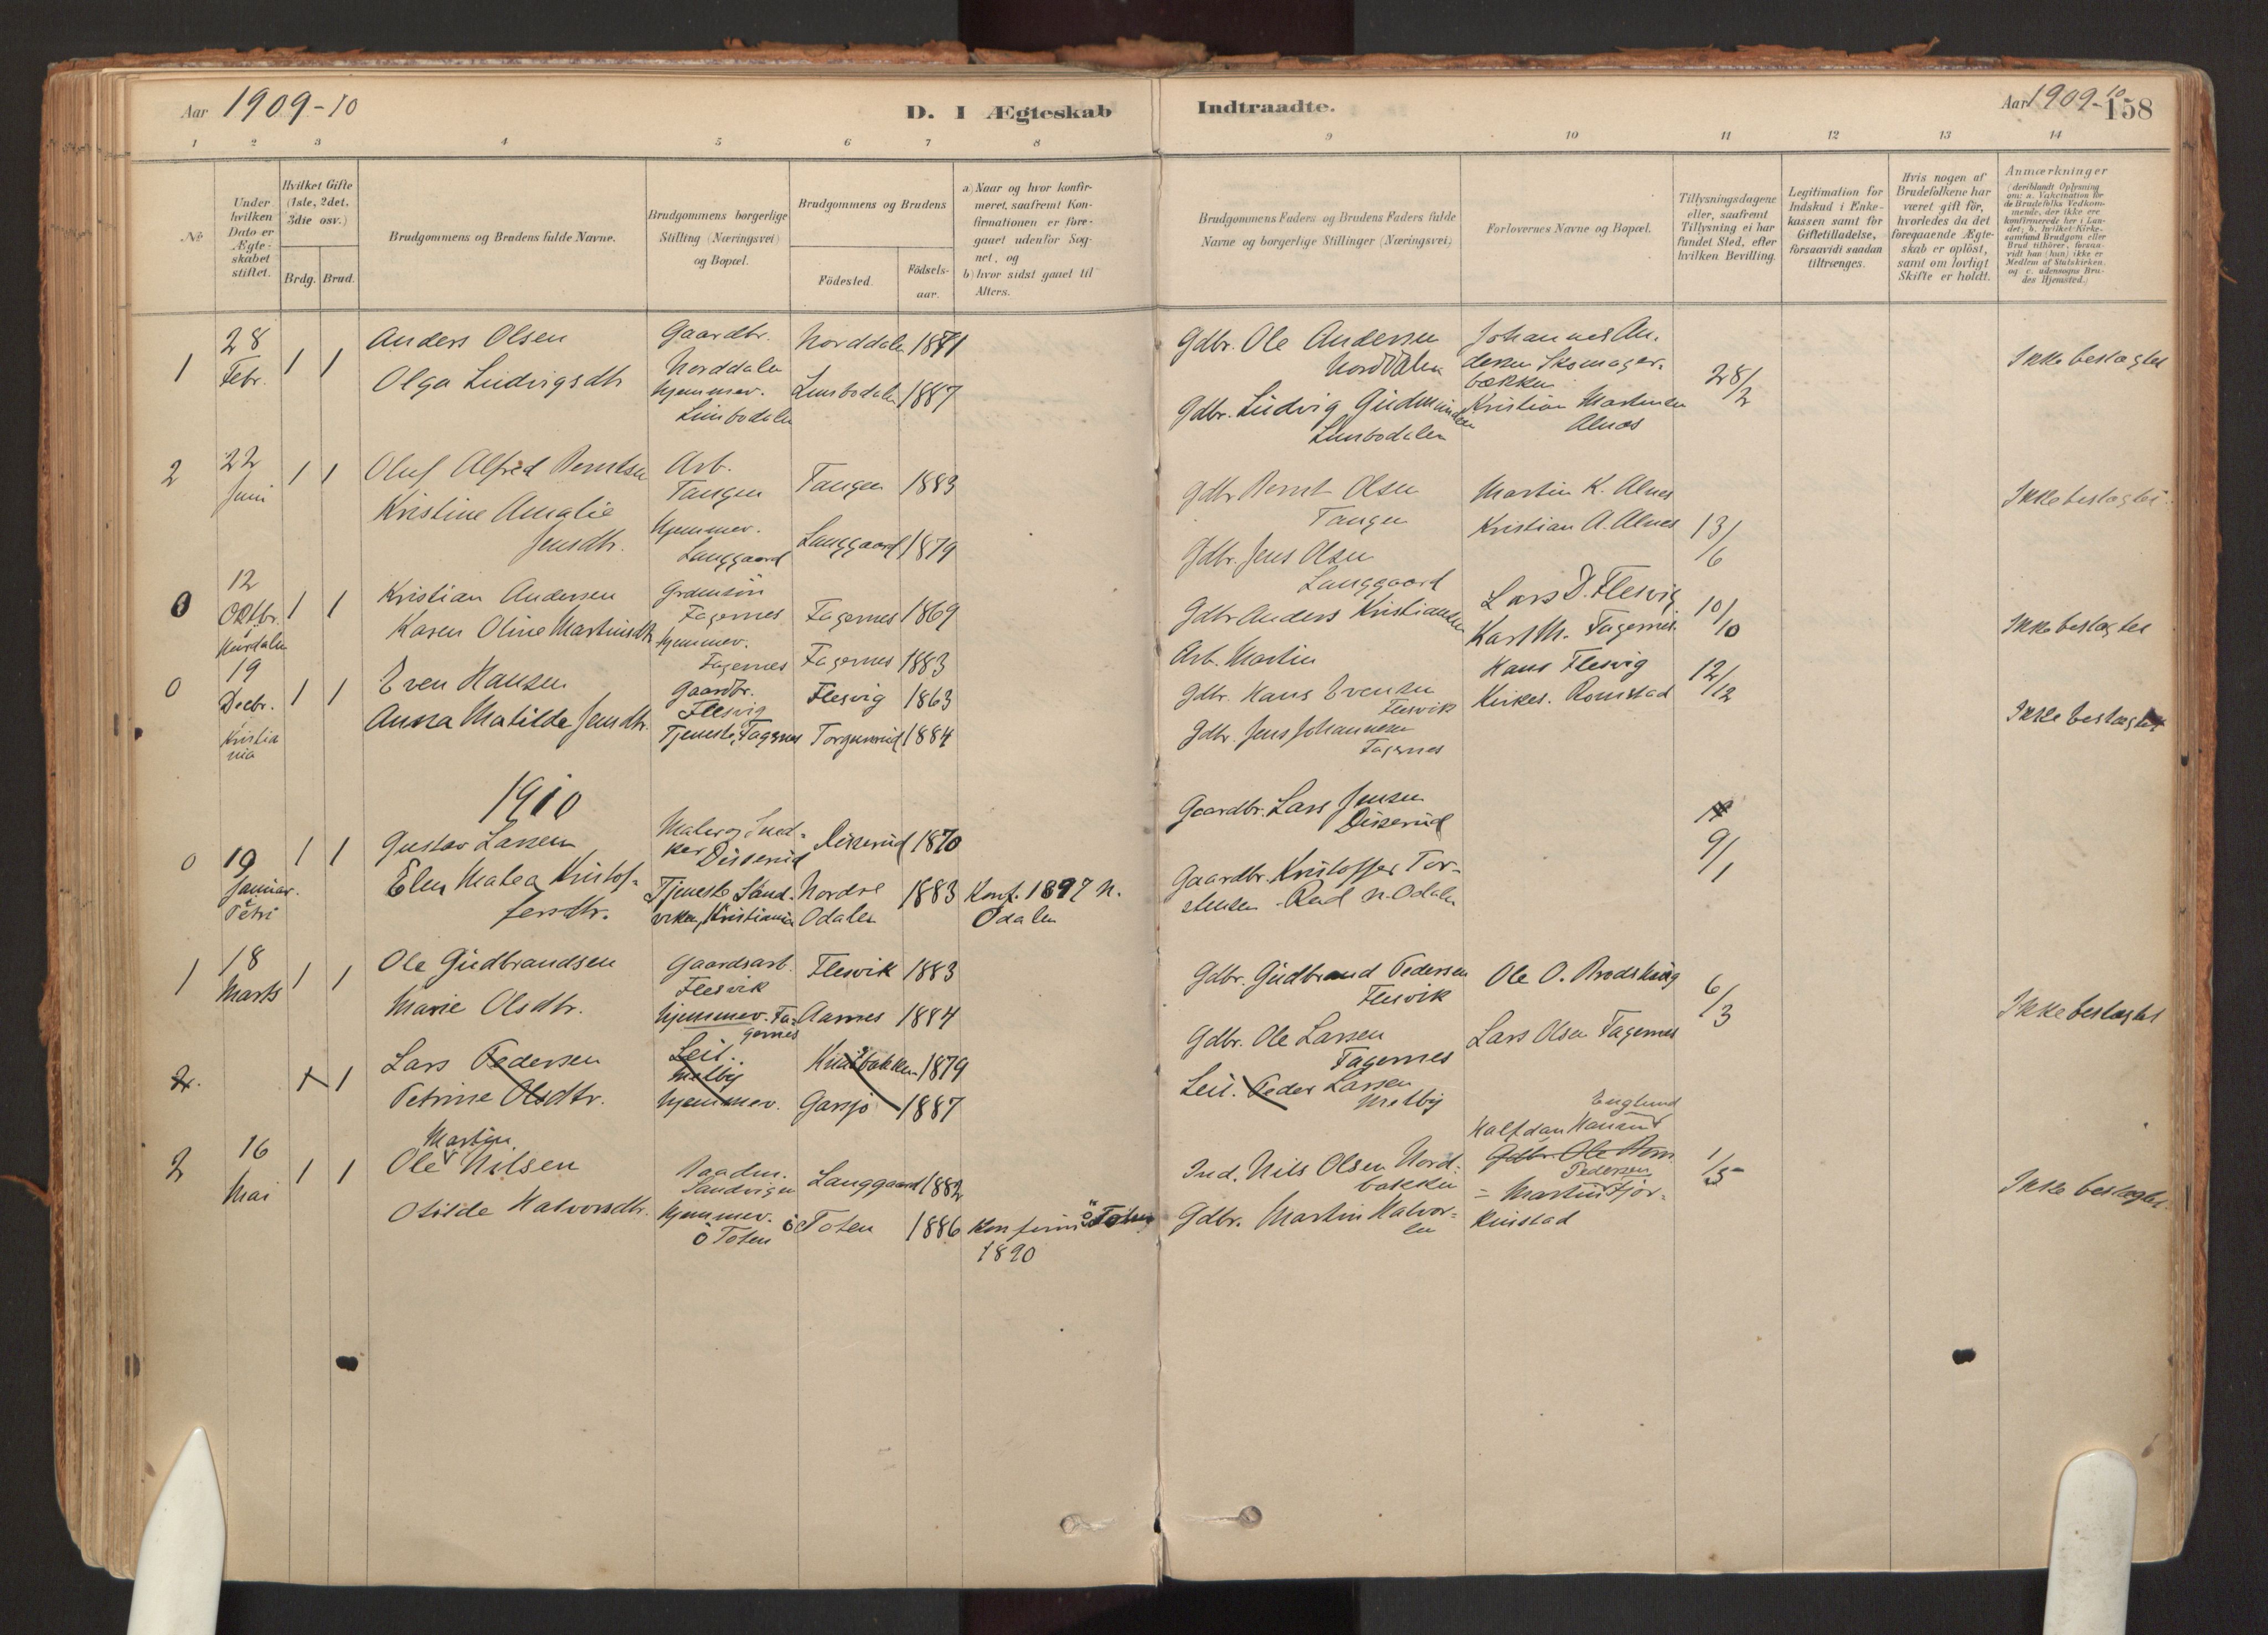 Aar 1909-10
D. I Ægteskab
Indtraadte.
Aar 1909-10
158
1 2 3 4 5 6 7 8
9 10 11 12 13 14
№
Under hvilken Dato er Ægteskabet stiftet.
Hvilket Gifte (1ste, 2det, 3die osv.)
Brdg. Brud.
Brudgommens og Brudens fulde Navne.
Brudgommens borgerlige Stilling (Næringsvei) og Bopæl.
Brudgommens og Brudens
Födested.
Födselsaar.
a) Naar og hvor konfirmeret, saafremt Konfirmationen er foregaaet udenfor Sognet, og
b) hvor sidst gaaet til Alters.
Brudgommens Faders og Brudens Faders fulde Navne og borgerlige Stillinger (Næringsvei)
Forlovernes Navne og Bopæl.
Tillysningsdagene eller, saafremt Tillysning ei har fundet Sted, efter hvilken Bevilling.
Legitimation for Indskud i Enkekassen samt for Giftetilladelse, forsaavidt saadan tiltrænges.
Hvis nogen af Brudefolkene har været gift för, hvorledes da det foregaaende Ægteskab er oplöst, samt om lovligt Skifte er holdt.
Anmærkninger
(deriblandt Oplysning om: a. Vakcination for de Brudefolks Vedkommende, der ikke ere konfirmerede her i Landet; b. hvilket Kirkesamfund Brudgom eller Brud tilhörer, forsaavidt han (hun) ikke er Medlem af Statskirken, og c. udensogns Brudes Hjemsted.)
1
28
Febr.
1 1
Anders Olsen
Olga Ludvigsdtr
Gaardbr.
Norddalen
hjemmev.
Limbodalen
Norddalen 1881
Limbodalen 1887
Gdbr. Ole Andersen
Norddalen
Gdbr. Ludvig Gudmundsen
Limbodalen
Johannes An-
dersen Skomager-
bakken
Kristian Martinsen
Alnæs
28/2
Ikke beslægtet
2
22
Juni
1 1
Oluf Alfred Berntsen
Kristine Amalie
Jensdtr.
Arb.
Tangen
hjemmev.
Langgaard
Tangen 1883
Langgaard 1879
Gdbr Bernt Olsen
Tangen
Gdbr. Jens Olsen
Langgaard
Martin K. Alnes
Kristian A. Alnes
13/6
Ikke beslægtet
0
12
Oktbr.
Hurdalen
1 1
Kristian Andersen
Karen Oline Martinsdtr
Grdmsön
Fagernes
hjemmev.
Fagernes
Fagernes 1869
Fagernes 1883
Gdbr Anders Kristiansen
Arb. Martin
Lars D. Flesvig
Karl M. Fagernes
10/10
Ikke beslægtet
0
19
Decbr.
Kristia
nia
1 1
Even Hansen
Anna Matilde Jensdtr.
Gaardbr.
Flesvig
Tjeneste, Fagernes
Flesvig 1863
Torgunrud 1884
Gdbr. Hans Evensen
Flesvik
Gdbr. Jens Johannesen
Fagernes
Hans Flesvig
Kirkes. Romstad
12/12
Ikke beslægtet
1910
0
19
Januar.
Petri
1 1
Gustav Larsen
Elen Matea Kristof-
fersdtr.
Maler og Sned-
ker Disserud
Tjeneste Sand-
viken, Kristiania
Disserud 1870
Nordre
Odalen
1883
Konf. 1897 N.
Odalen
Gaardbr. Lars Jensen
Disserud
Gaardbr. Kristoffer Tor-
stensen Rud N. Odalen
9/1
1
18
Marts
1 1
Ole Gudbrandsen
Marie Olsdtr.
Gaardsarb.
Flesvik
hjemmev. Fa-
gernes
Flesvik 1883
Aarnes 1884
Gdbr. Gudbrand Pedersen
Flesvik
Gdbr. Ole Larsen
Fagernes
Ole O. Brodshaug
Lars Olsen Fagernes
6/3
Ikke beslægtet
2.
1 1
Lars Pedersen
Petrine Olsdtr.
Leil.
Melby
hjemmev.
Knaisbakken 1879
Garsjö 1887
Leil. Peder Larsen
Melby
2
16
Mai
1 1
Martin
Ole Nilsen
Otilde Halvorsdtr.
Sandvigen
hjemmev.
ö Toten
Langgaard 1882
ö Toten 1886
Konfirm ö Toten
1890
Ind. Nils Olsen Nord-
bakken
Gdbr. Martin Halvor-
sen
Englund
Halfdan Hansen
Gdbr. Ole
Pedersen
Martin Fjor-
kinstad
1/5
Ikke beslægtet